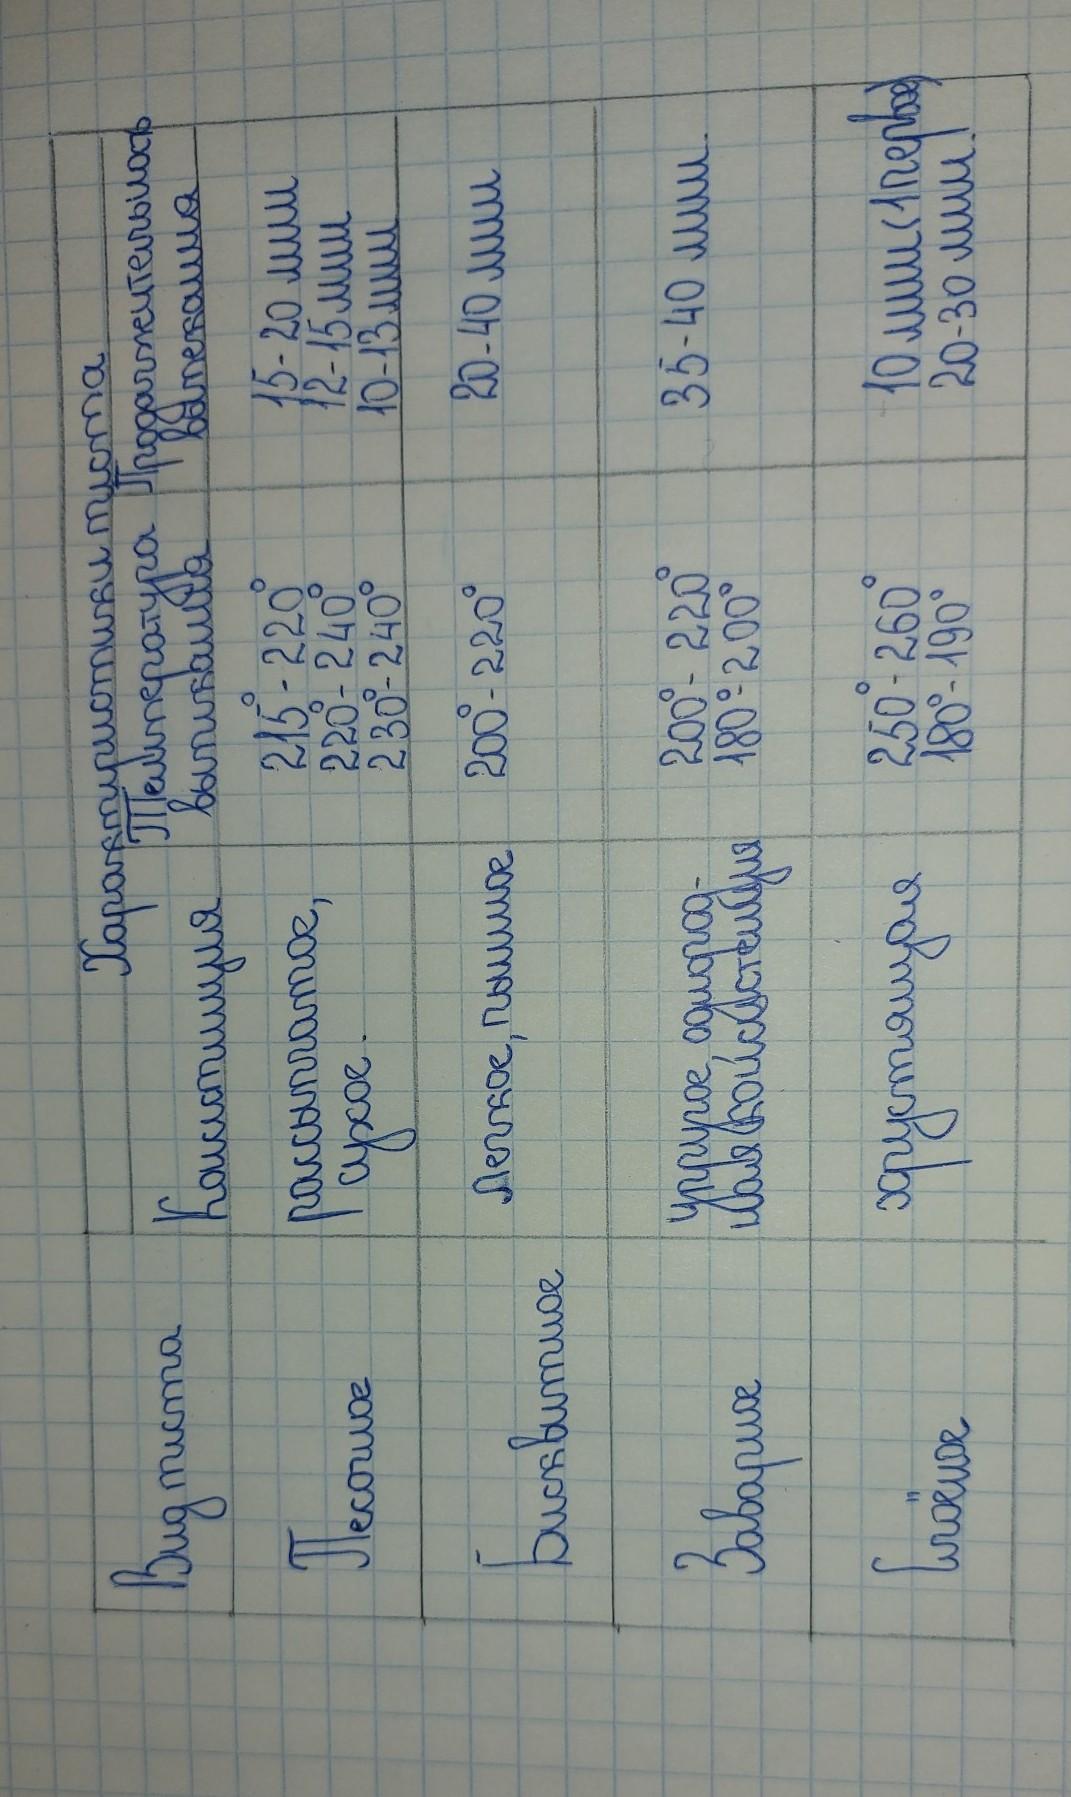 Характиристики тиста
Вид тиста
Консистиция
Температура
выпикания
Продолжительность
выпекания
Песочное
рассыпчатое,
сухое.
215°-220°
220°-240°
230°-240°
15-20 мин
12-15 мин
10-13 мин
Бисквитное
Легкое, пышное
200°-220°
20-40 мин
Заварное
упругое, однород-
ная
200°-220°
180°-200°
35-40 мин.
Слоёное
хрустящая
250°-260°
180°-190°
10 мин (1 первое)
20-30 мин.